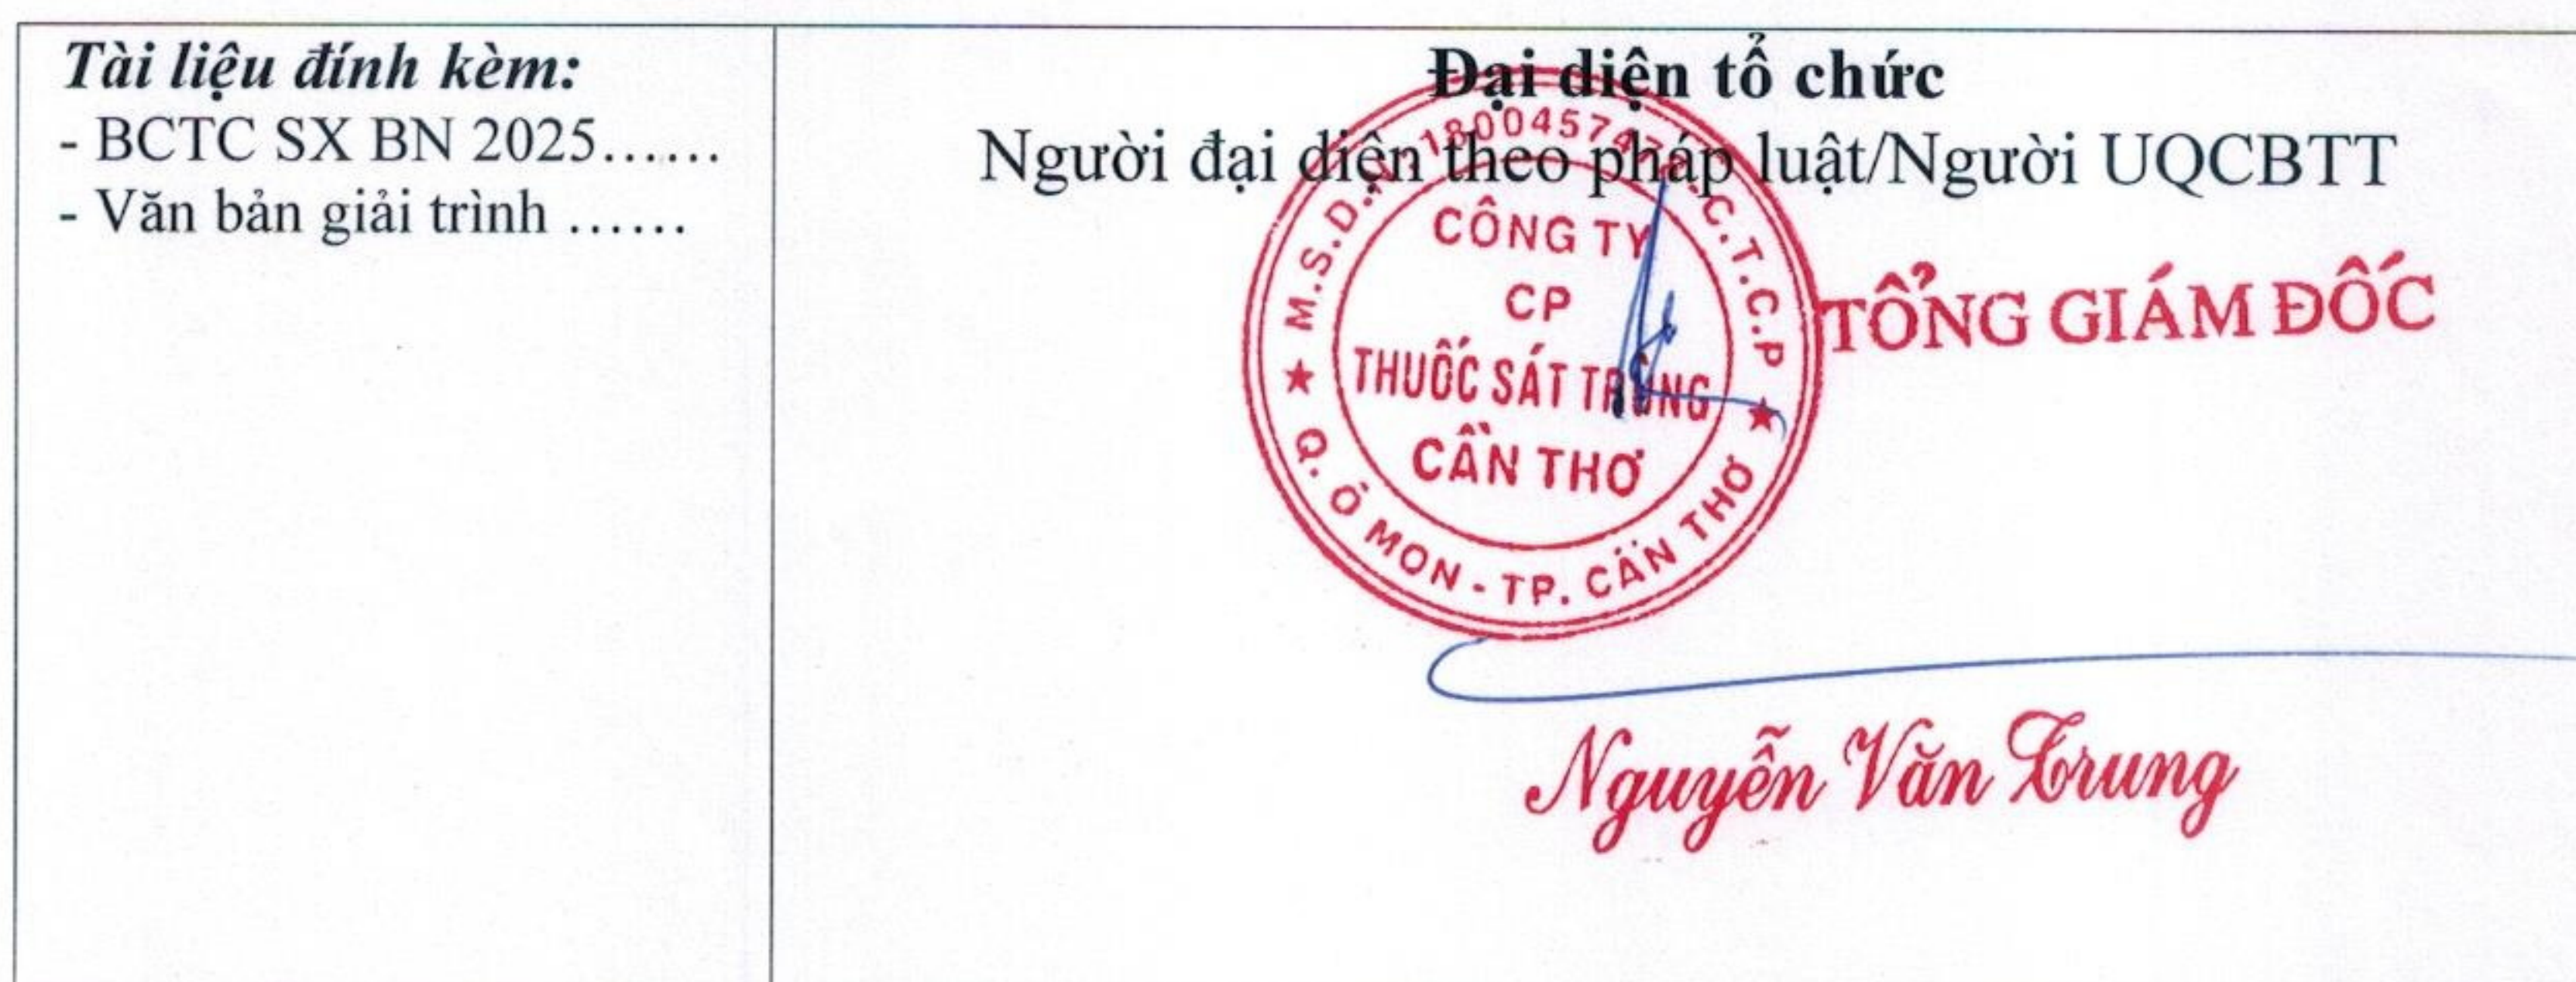 Tài liệu đính kèm:
- BCTC SX BN 2025......
- Văn bản giải trình ......
Đại diện tổ chức
Người đại diện theo pháp luật/Người UQCBTT
M.S.D.N: 18004574 - C.T.C.P
CÔNG TY
CP
THUỐC SÁT TRÙNG
CẦN THƠ
Q. Ô MON - TP. CẦN THƠ
TỔNG GIÁM ĐỐC
Nguyễn Văn Trung